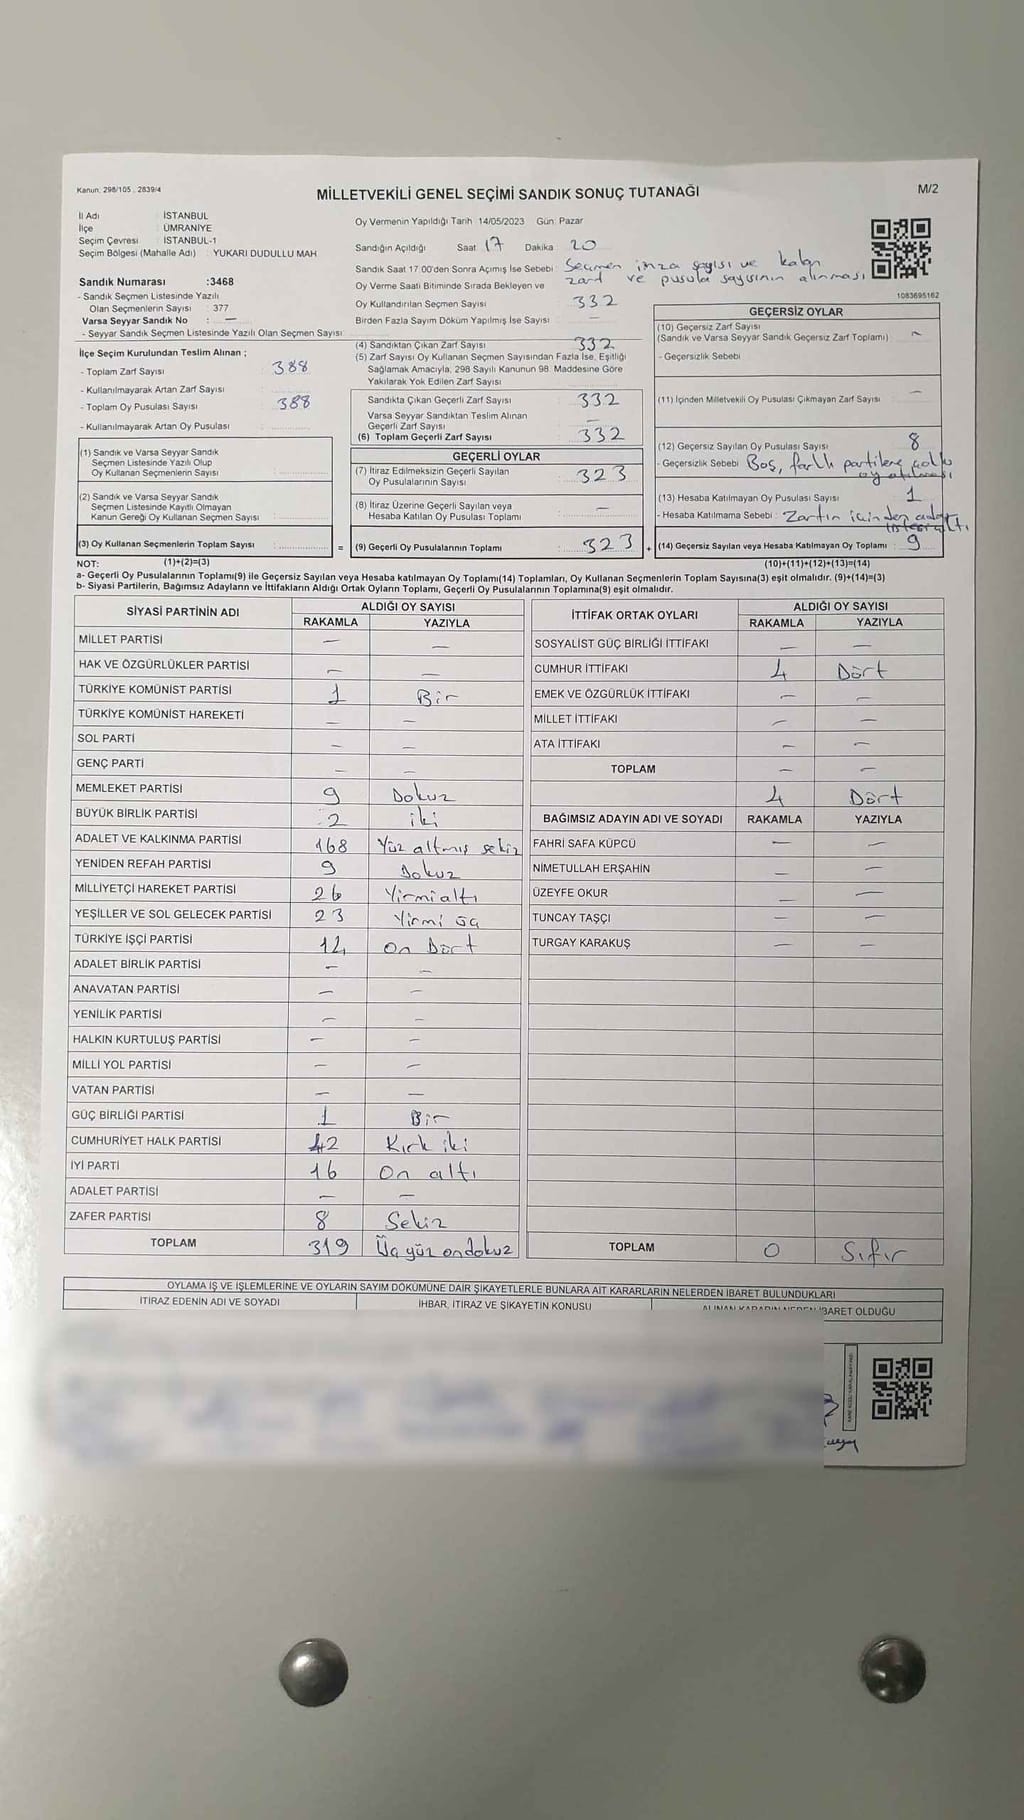 Kanun; 298/105 , 2839/4
MİLLETVEKİLİ GENEL SEÇİMİ SANDIK SONUÇ TUTANAĞI
M/2
İl Adı : İSTANBUL
İlçe : ÜMRANİYE
Seçim Çevresi : İSTANBUL-1
Seçim Bölgesi (Mahalle Adı) : YUKARI DUDULLU MAH
Sandık Numarası :3468
- Sandık Seçmen Listesinde Yazılı
Olan Seçmenlerin Sayısı : 377
Varsa Seyyar Sandık No : —
- Seyyar Sandık Seçmen Listesinde Yazılı Olan Seçmen Sayısı:
Oy Vermenin Yapıldığı Tarih 14/05/2023 Gün: Pazar
Sandığın Açıldığı Saat 17 Dakika 20
Sandık Saat 17:00'den Sonra Açımış İse Sebebi Seçmen imza sayısı ve kalan
zarf ve pusula sayısının alınması
Oy Verme Saati Bitiminde Sırada Bekleyen ve
Oy Kullandırılan Seçmen Sayısı 332
Birden Fazla Sayım Döküm Yapılmış İse Sayısı —
1083695162
İlçe Seçim Kurulundan Teslim Alınan ;
- Toplam Zarf Sayısı : 388
- Kullanılmayarak Artan Zarf Sayısı :
- Toplam Oy Pusulası Sayısı : 388
- Kullanılmayarak Artan Oy Pusulası :
(1) Sandık ve Varsa Seyyar Sandık
Seçmen Listesinde Yazılı Olup
Oy Kullanan Seçmenlerin Sayısı :
(2) Sandık ve Varsa Seyyar Sandık
Seçmen Listesinde Kayıtlı Olmayan
Kanun Gereği Oy Kullanan Seçmen Sayısı :
(3) Oy Kullanan Seçmenlerin Toplam Sayısı :
(4) Sandıktan Çıkan Zarf Sayısı 332
(5) Zarf Sayısı Oy Kullanan Seçmen Sayısından Fazla İse, Eşitliği
Sağlamak Amacıyla, 298 Sayılı Kanunun 98. Maddesine Göre
Yakılarak Yok Edilen Zarf Sayısı
Sandıkta Çıkan Geçerli Zarf Sayısı 332
Varsa Seyyar Sandıktan Teslim Alınan
Geçerli Zarf Sayısı —
(6) Toplam Geçerli Zarf Sayısı 332
GEÇERLİ OYLAR
(7) İtiraz Edilmeksizin Geçerli Sayılan
Oy Pusulalarının Sayısı 323
(8) İtiraz Üzerine Geçerli Sayılan veya
Hesaba Katılan Oy Pusulası Toplamı —
= (9) Geçerli Oy Pusulalarının Toplamı 323 +
GEÇERSİZ OYLAR
(10) Geçersiz Zarf Sayısı
(Sandık ve Varsa Seyyar Sandık Geçersiz Zarf Toplamı) : —
- Geçersizlik Sebebi
(11) İçinden Milletvekili Oy Pusulası Çıkmayan Zarf Sayısı —
(12) Geçersiz Sayılan Oy Pusulası Sayısı 8
- Geçersizlik Sebebi Boş, farklı partilere
oy atılması
(13) Hesaba Katılmayan Oy Pusulası Sayısı 1
- Hesaba Katılmama Sebebi : Zarfın içinden
(14) Geçersiz Sayılan veya Hesaba Katılmayan Oy Toplamı : 9
NOT: (1)+(2)=(3) (10)+(11)+(12)+(13)=(14)
a- Geçerli Oy Pusulalarının Toplamı(9) ile Geçersiz Sayılan veya Hesaba katılmayan Oy Toplamı(14) Toplamları, Oy Kullanan Seçmenlerin Toplam Sayısına(3) eşit olmalıdır. (9)+(14)=(3)
b- Siyasi Partilerin, Bağımsız Adayların ve İttifakların Aldığı Ortak Oyların Toplamı, Geçerli Oy Pusulalarının Toplamına(9) eşit olmalıdır.
SİYASİ PARTİNİN ADI ALDIĞI OY SAYISI
RAKAMLA YAZIYLA
MİLLET PARTİSİ — —
HAK VE ÖZGÜRLÜKLER PARTİSİ — —
TÜRKİYE KOMÜNİST PARTİSİ 1 Bir
TÜRKİYE KOMÜNİST HAREKETİ — —
SOL PARTİ — —
GENÇ PARTİ — —
MEMLEKET PARTİSİ 9 Dokuz
BÜYÜK BİRLİK PARTİSİ 2 iki
ADALET VE KALKINMA PARTİSİ 168 Yüz altmış sekiz
YENİDEN REFAH PARTİSİ 9 Dokuz
MİLLİYETÇİ HAREKET PARTİSİ 26 Yirmi altı
YEŞİLLER VE SOL GELECEK PARTİSİ 23 Yirmi üç
TÜRKİYE İŞÇİ PARTİSİ 14 On Dört
ADALET BİRLİK PARTİSİ — —
ANAVATAN PARTİSİ — —
YENİLİK PARTİSİ — —
HALKIN KURTULUŞ PARTİSİ — —
MİLLİ YOL PARTİSİ — —
VATAN PARTİSİ — —
GÜÇ BİRLİĞİ PARTİSİ 1 Bir
CUMHURİYET HALK PARTİSİ 42 Kırk iki
İYİ PARTİ 16 On altı
ADALET PARTİSİ — —
ZAFER PARTİSİ 8 Sekiz
TOPLAM 319 Üç yüz on dokuz
İTTİFAK ORTAK OYLARI ALDIĞI OY SAYISI
RAKAMLA YAZIYLA
SOSYALİST GÜÇ BİRLİĞİ İTTİFAKI — —
CUMHUR İTTİFAKI 4 Dört
EMEK VE ÖZGÜRLÜK İTTİFAKI — —
MİLLET İTTİFAKI — —
ATA İTTİFAKI — —
TOPLAM — —
4 Dört
BAĞIMSIZ ADAYIN ADI VE SOYADI RAKAMLA YAZIYLA
FAHRİ SAFA KÜPCÜ — —
NİMETULLAH ERŞAHİN — —
ÜZEYFE OKUR — —
TUNCAY TAŞÇI — —
TURGAY KARAKUŞ — —
TOPLAM 0 Sıfır
OYLAMA İŞ VE İŞLEMLERİNE VE OYLARIN SAYIM DÖKÜMÜNE DAİR ŞİKAYETLERLE BUNLARA AİT KARARLARIN NELERDEN İBARET BULUNDUKLARI
İTİRAZ EDENİN ADI VE SOYADI İHBAR, İTİRAZ VE ŞİKAYETİN KONUSU ALINAN KARARIN NEDEN İBARET OLDUĞU